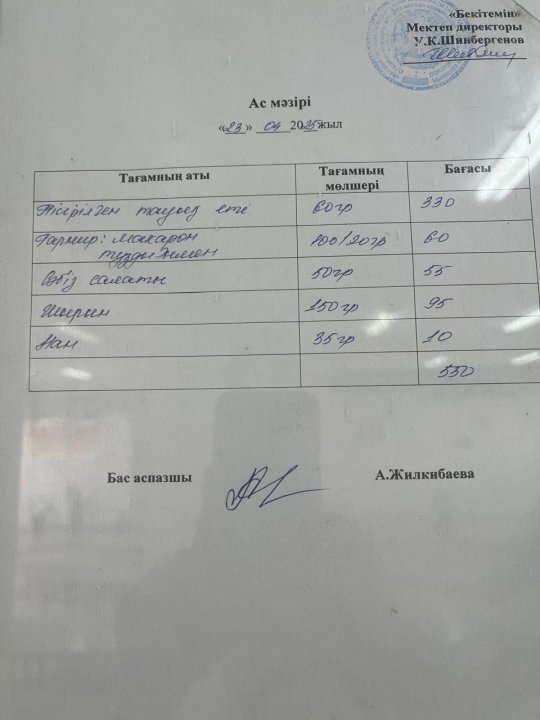 «Бекітемін»
Мектеп директоры
У.К.Шинбергенов
Ас мәзірі
«23» 04 2025жыл
Тағамның аты Тағамның мөлшері Бағасы
Пісірілген тауық еті 60гр 330
Гарнир: макарон тұздықпен 100/20гр 60
Сәбіз салаты 50гр 55
Шырын 150гр 95
Нан 35гр 10
550
Бас аспазшы А.Жилкибаева